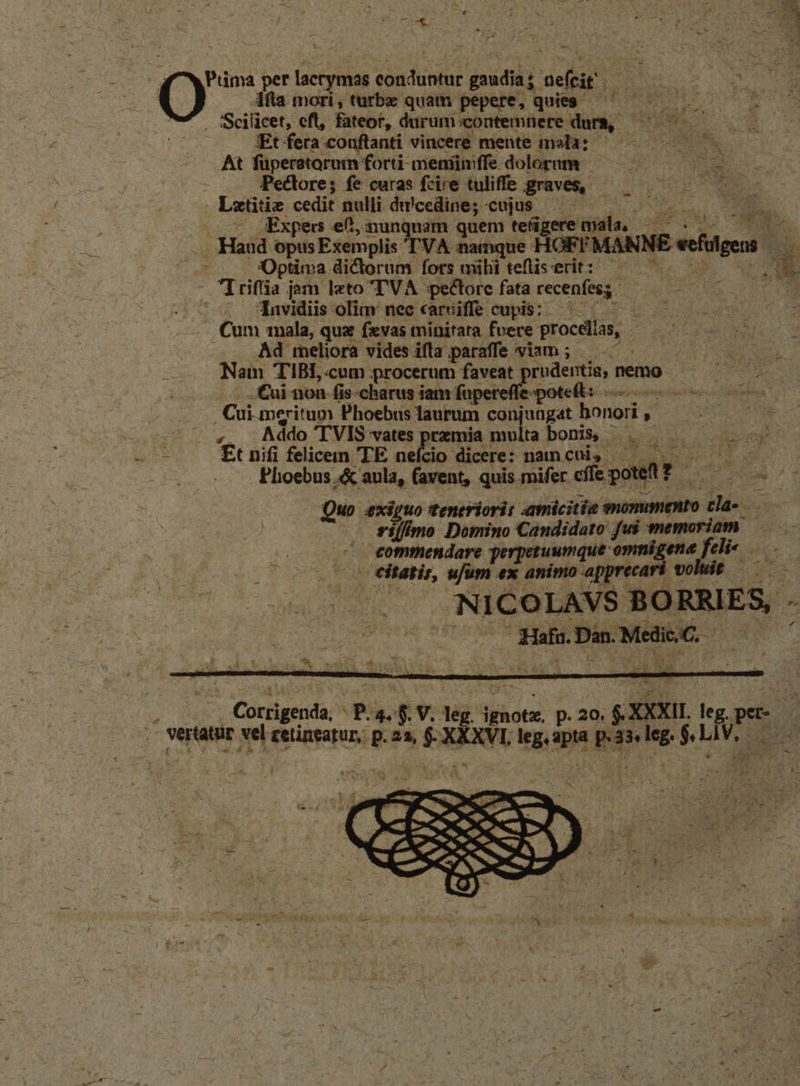 OPtima per lacrymas conduntur gaudia; neſcit
Iſta mori, turbæ quam pepere, quies
Scilicet, eſt, fateor, durum contemnere dura,
Et fera conſtanti vincere mente mala:
At ſuperatorum forti meminiſſe dolorum
Pectore; ſe curas ſcire tuliſſe graves,
Lætitiæ cedit nulli dulcedine; cujus
Expers eſt, nunquam quem tetigere mala.
Haud opus Exemplis TVA namque HOFFMANNE refulgens
Optima dictorum ſors mihi teſtis erit:
Triſtia jam læto TVA pectore fata recenſes;
Invidiis olim nec caruiſſe cupis:
Cum mala, quæ ſævas minitata fuere procellas,
Ad meliora vides iſta paraſſe viam;
Nam TIBI, cum procerum faveat prudentia, nemo
Cui non ſis charus iam ſupereſſe poteſt:
Cui meritum Phoebus laurum conjungat honori,
Addo TVIS vates præmia multa bonis,
Et niſi felicem TE neſcio dicere: nam cui,
Phoebus & aula, favent, quis miſer eſſe poteſt?
Quo exiguo tenerioris amicitiæ monumento cla-
riſſimo Domino Candidato ſui memoriam
commendare perpetuumque omnigenæ feli-
citatis, uſum ex animo apprecari voluit
NICOLAVS BORRIES,
Hafn. Dan. Medic. C.
Corrigenda, P. 4. §. V. leg. ignotæ, p. 20. §. XXXII. leg. per-
vertatur vel retineatur, p. 22, §. XXXVI, leg. apta p. 33. leg. §. LIV.